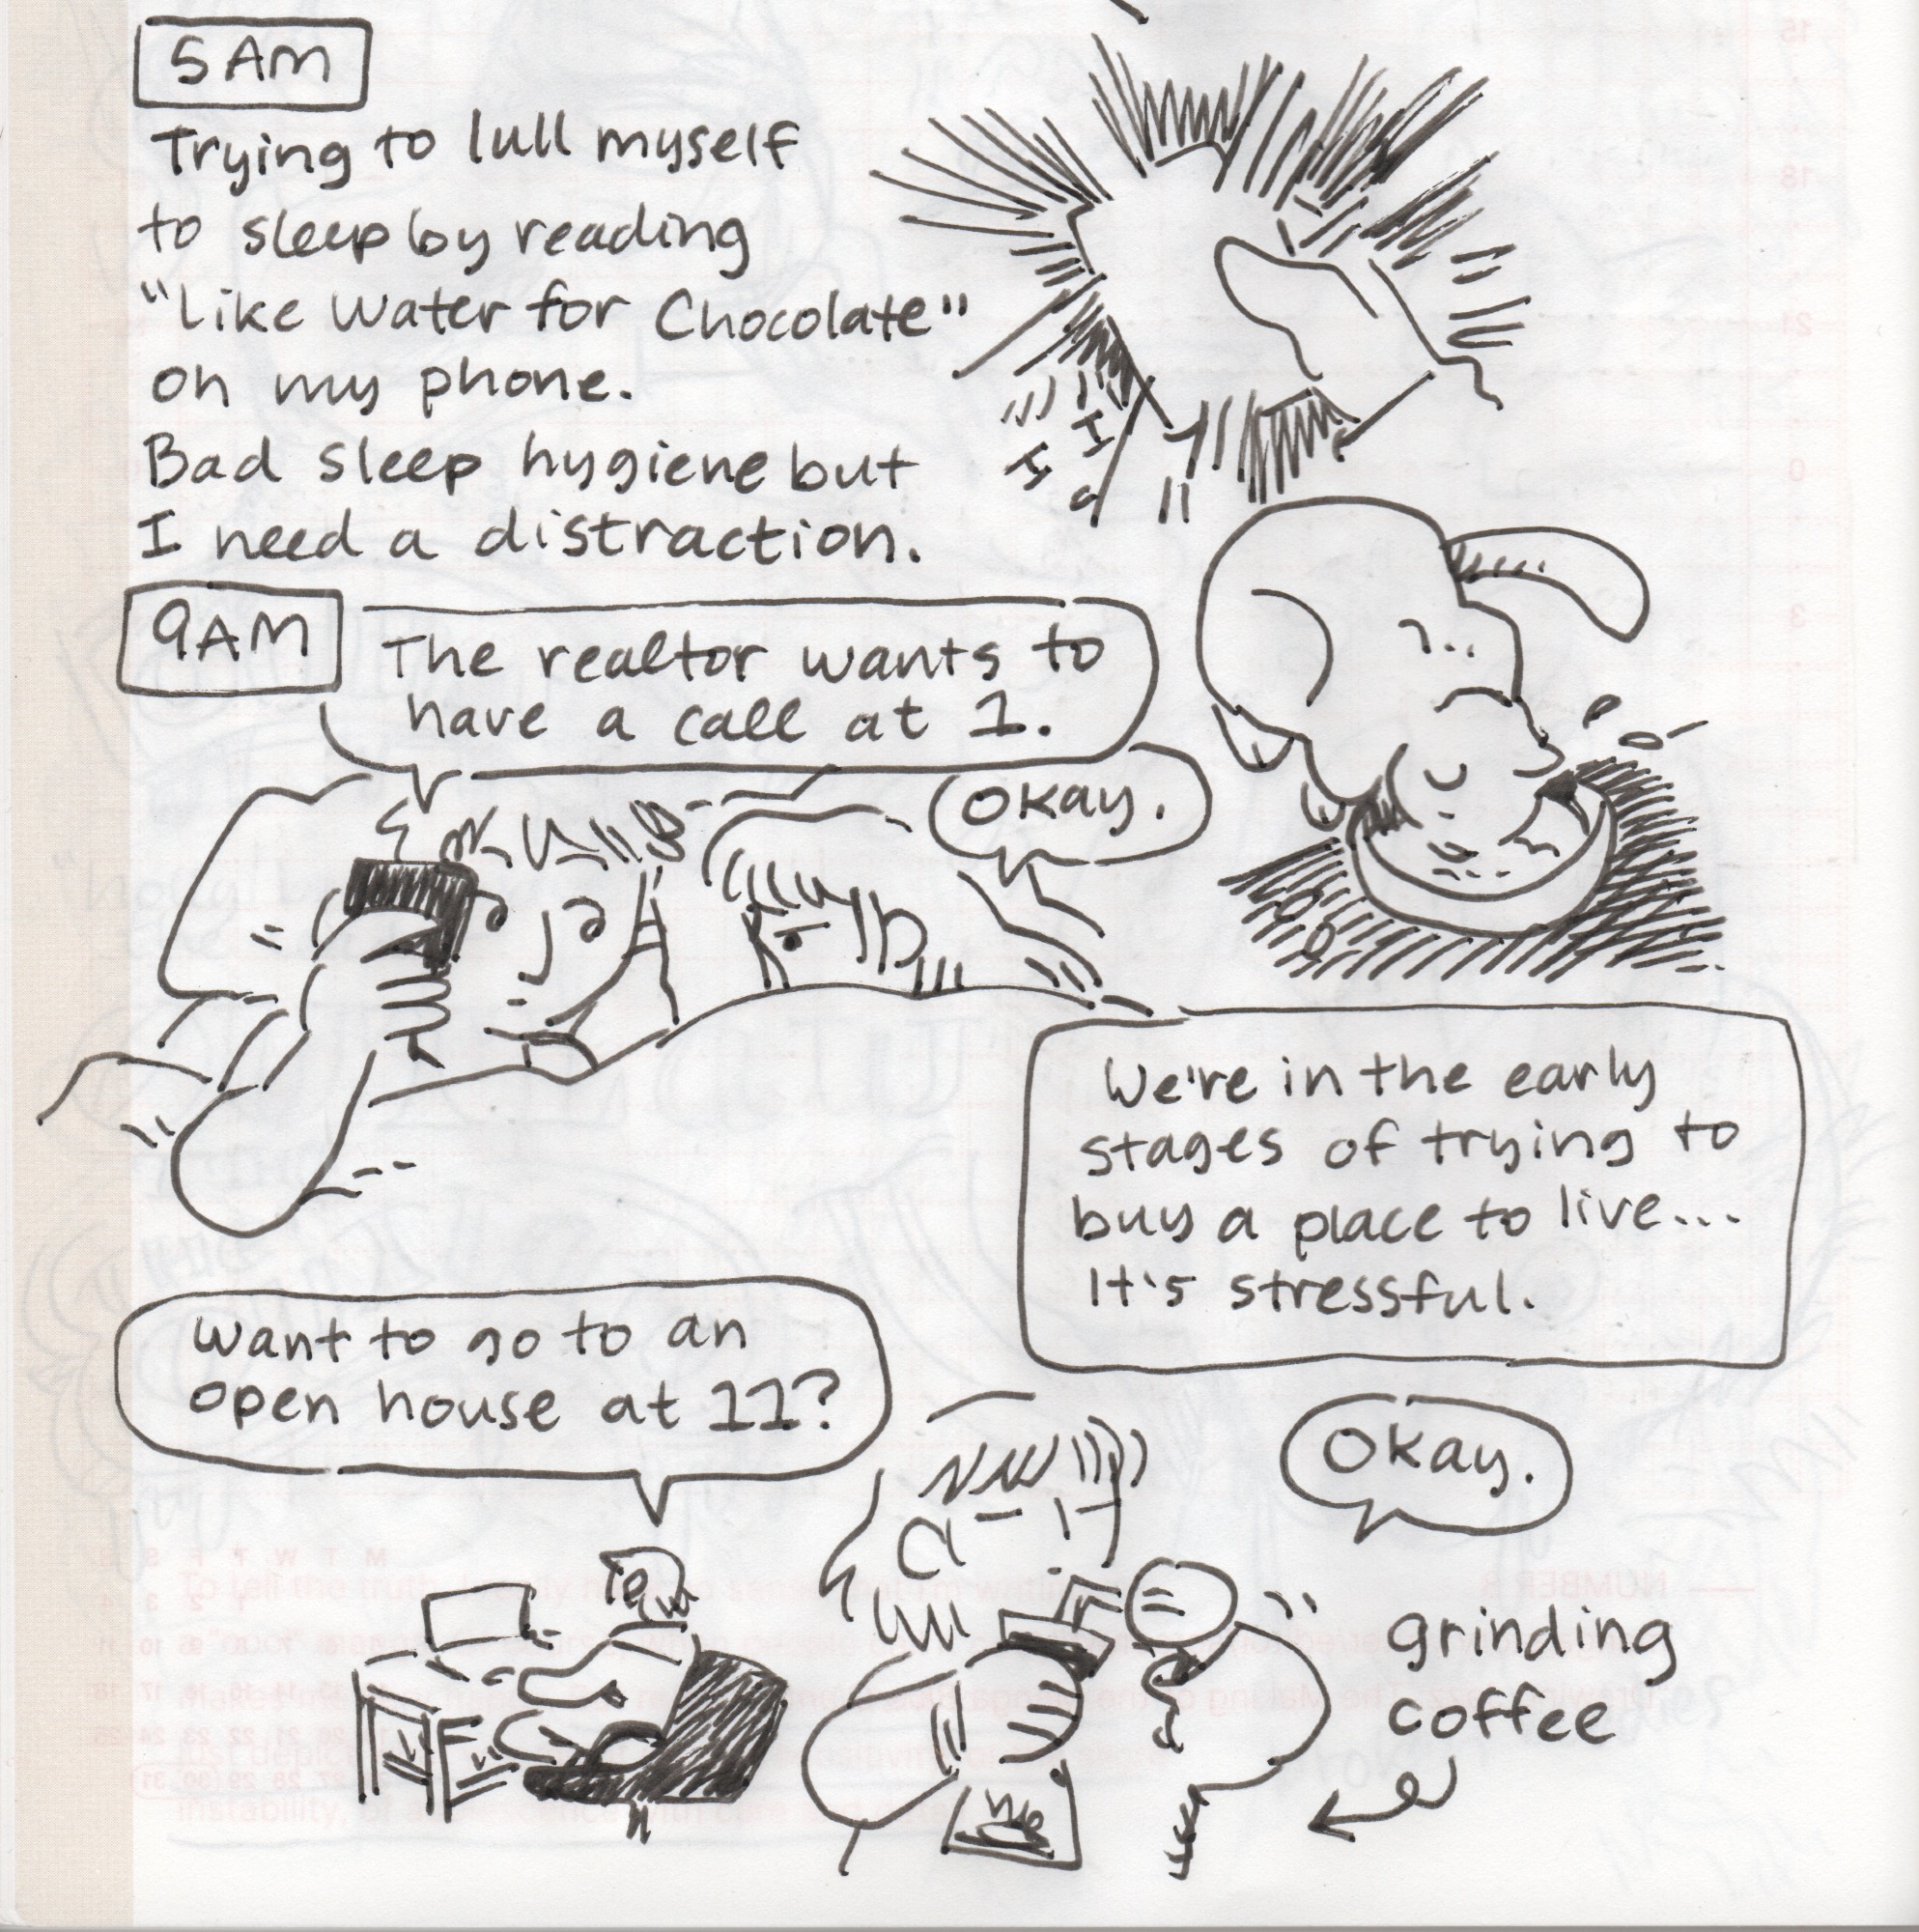 5 AM
Trying to lull myself
to sleep by reading
"Like Water for Chocolate"
on my phone.
Bad sleep hygiene but
I need a distraction.
9AM
The realtor wants to
have a call at 1.
Okay.
We're in the early
stages of trying to
buy a place to live...
It's stressful.
Want to go to an
open house at 11?
Okay.
grinding
coffee